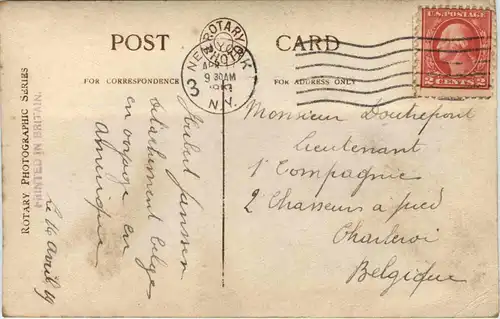 POST CARD
FOR CORRESPONDENCE
FOR ADDRESS ONLY
ROTARY PHOTOGRAPHIC SERIES
PRINTED IN BRITAIN.
ROTARY PHOTO
NEW YORK
3
N.Y.
9 30AM
U.S. POSTAGE
2 CENTS 2
Hubert Janssen
détachement belge
en voyage en
Amérique
Le 16 avril 19
Monsieur Doutrepont
Lieutenant
1e Compagnie
2 Chasseurs à pied
Charleroi
Belgique